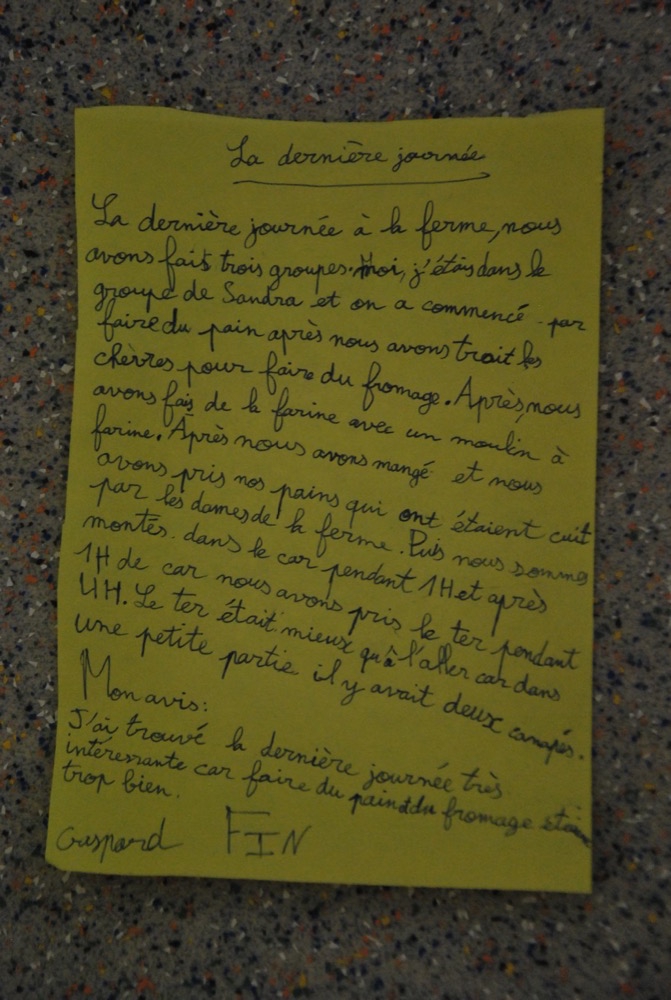 La dernière journée
La dernière journée à la ferme, nous
avons fais trois groupes. Moi, j'étais dans le
groupe de Sandra et on a commencé par
faire du pain après nous avons trait les
chèvres pour faire du fromage. Après, nous
avons fais de la farine avec un moulin à
farine. Après nous avons mangé et nous
avons pris nos pains qui ont étaient cuit
par les dames de la ferme. Puis nous sommes
montés dans le car pendant 1H et après
1H de car nous avons pris le ter pendant
4H. Le ter était mieux qu'à l'aller car dans
une petite partie il y avait deux canapés.
Mon avis:
J'ai trouvé la dernière journée très
intéressante car faire du pain et du fromage
trop bien.
Gaspard FIN